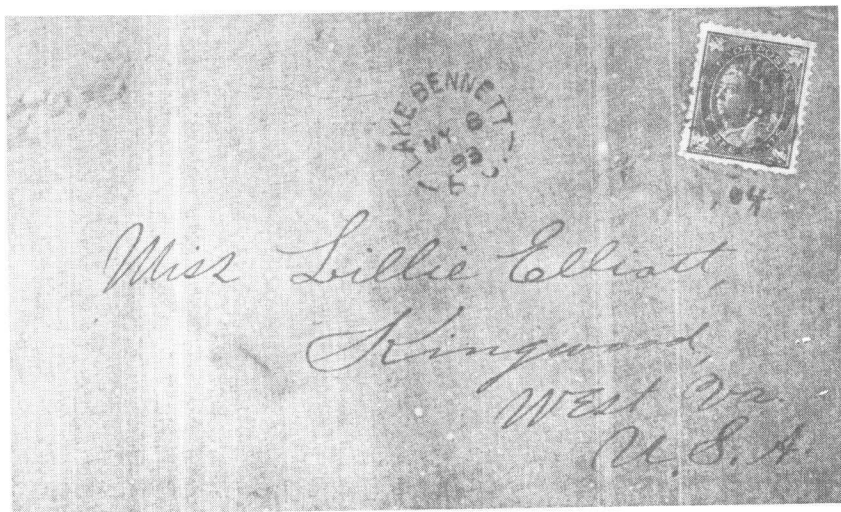 LAKE BENNETT
MY 6
98
B.C.
.04
Miss Lillie Elliott,
Kingwood,
West Va.
U.S.A.